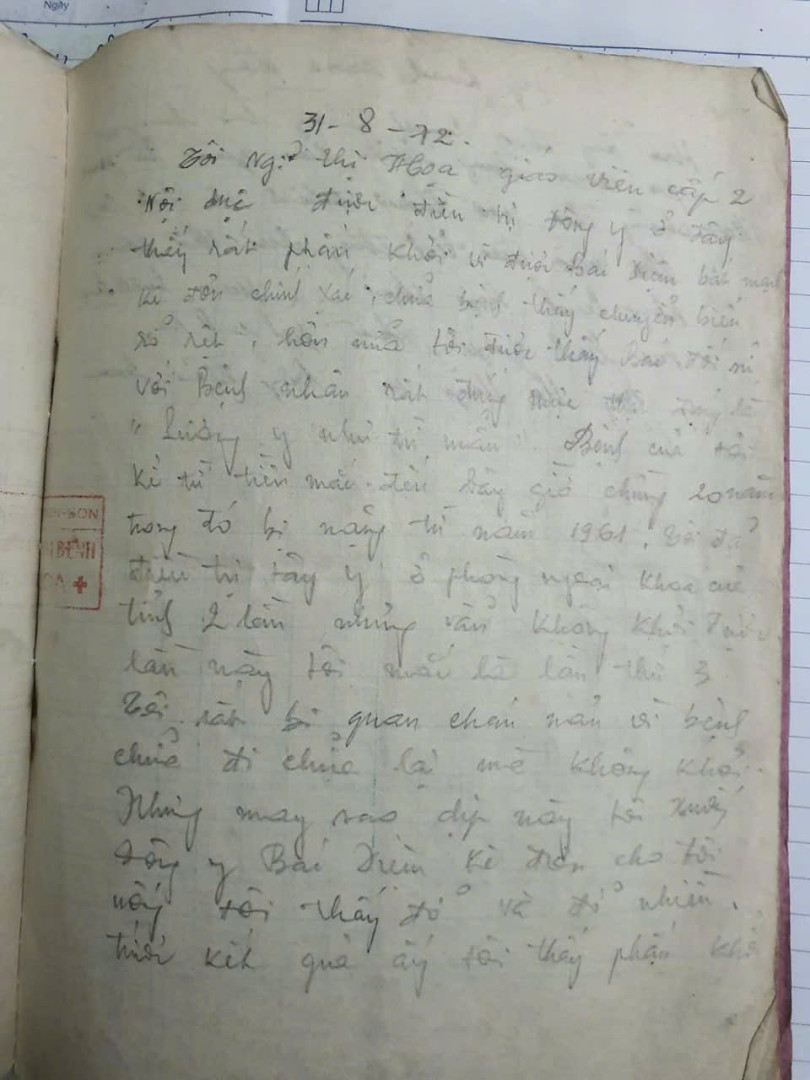 Ngày
31-8-72.
Tôi Ngô thị Hoa giáo viên cấp 2
Nội duệ được điều trị đông y ở đây
thấy rất phấn khởi vì được bác Diễn bắt mạch
kê đơn chính xác, chữa bệnh thấy chuyển biến
rõ rệt, hơn nữa tôi được thấy bác đối sử
với Bệnh nhân rất đúng mực thật đúng là
"Lương y như từ mẫu". Bệnh của tôi
kể từ tiền mắc đến bây giờ chừng 20 năm
trong đó bị nặng từ năm 1961. Tôi đã
điều trị tây y ở phòng ngoại khoa của
tỉnh 2 lần nhưng vẫn không khỏi được
lần này tôi mắc là lần thứ 3
Tôi rất bi quan chán nản vì bệnh
chữa đi chữa lại mà không khỏi.
Nhưng may sao dịp này tôi xuống
đông y Bác Diễn kê đơn cho tôi
uống tôi thấy đỡ và đỡ nhiều.
trước kết quả ấy tôi thấy phấn khởi
SƠN
BỆNH